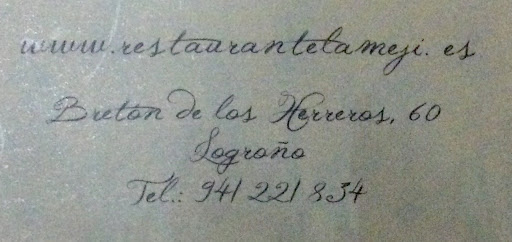 www.restaurantelameji.es
Breton de los Herreros, 60
Logroño
Tel.: 941 221 834